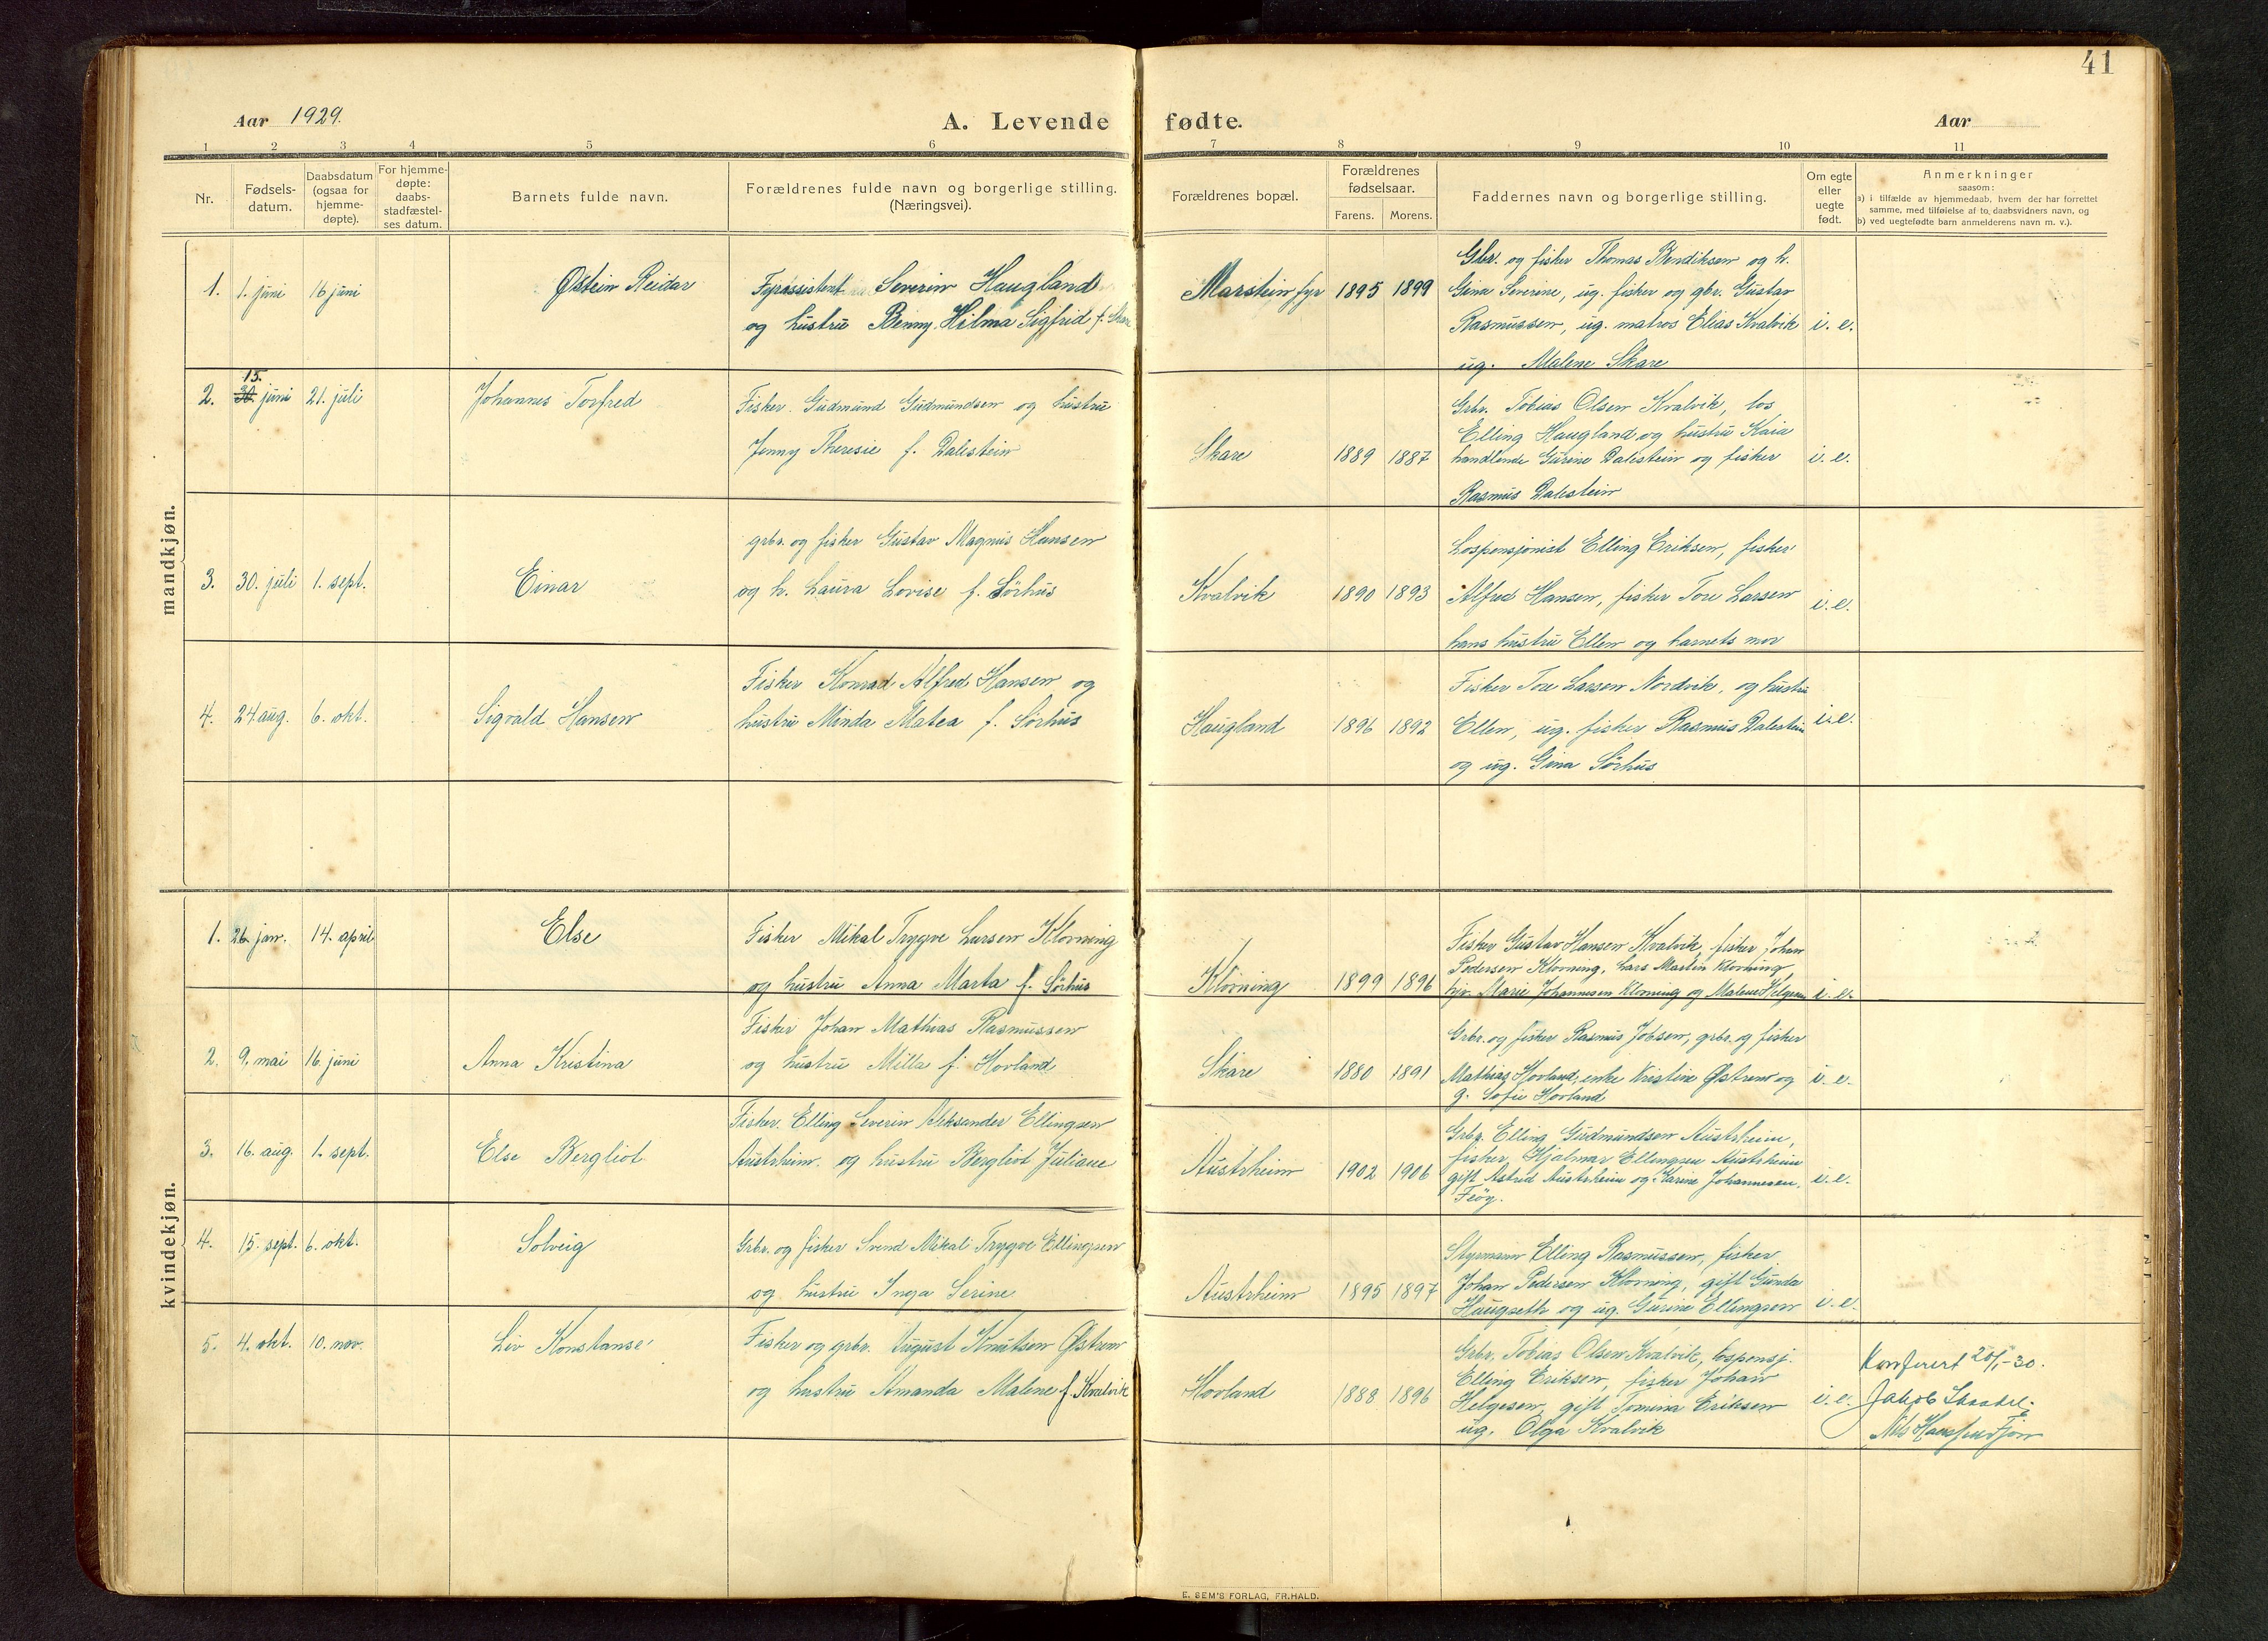 41
Aar 1929.
A. Levende fødte.
Aar
1 2 3 4 5 6 7 8 9 10 11
Nr.
Fødsels-
datum.
Daabsdatum
(ogsaa for
hjemme-
døpte).
For hjemme-
døpte:
daabs-
stadfæstel-
ses datum.
Barnets fulde navn.
Forældrenes fulde navn og borgerlige stilling.
(Næringsvei).
Forældrenes bopæl.
Forældrenes
fødselsaar.
Farens. Morens.
Faddernes navn og borgerlige stilling.
Om egte
eller
uegte
født.
Anmerkninger
saasom:
a) i tilfælde av hjemmedaab, hvem der har forrettet
samme, med tilføielse af to daabsvidners navn, og
b) ved uegtefødte barn anmelderens navn m. v.).
mandkjøn.
1. 1. juni 16 juni Østein Reidar
Fyrassistent Severin Haugland
og hustru Benny Hilma Sigfrid f. Skare
Marstein fyr 1895 1899
Gbr. og fisker Thomas Bendiksen og h.
Gina Severine, ug. fisker og gbr. Gustav
Rasmussen, ug. matros Elias Kvalvik i. e.
ug. Malene Skare
15.
2. 30. juni 21. juli Johannes Torfred
Fisker Gudmund Gudmundsen og hustru
Jenny Theresie f. Dalestein
Skare 1889 1887
Grbr. Tobias Olsen Kvalvik, los
Elling Haugland og hustru Kaia
handlende Gurine Dalestein og fisker i. e.
Rasmus Dalestein
3. 30. juli 1. sept. Einar
grbr. og fisker Gustav Magnus Hansen
og h. Laura Lovise f. Sörhus
Kvalvik 1890 1893
Lospensjonist Elling Eriksen, fisker
Alfred Hansen, fisker Tore Larsen i. e.
hans hustru Ellen og barnets mor
4. 24 aug. 6. okt. Sigvald Hansen
Fisker Konrad Alfred Hansen og
hustru Minda Matea f. Sörhus
Haugland 1896 1892
Fisker Tore Larsen Nordvik, og hustru
Ellen, ug. fisker Rasmus Dalestein i. e.
og ug. Gina Sörhus
kvindekjøn.
1. 26. jan. 14. april Else
Fisker Mikal Trygve Larsen Klovning
og hustru Anna Marta f. Sörhus
Klovning 1899 1896
Fisker Gustav Hansen Kvalvik, fisker Johan
Pedersen Klovning, Lars Martin Klovning,
Marie Johannesen Klovning og Malene Helgesen i. e.
2. 9. mai 16 juni Anna Kristina
Fisker Johan Mathias Rasmussen
og hustru Milla f. Hovland
Skare 1880 1891
Grbr. og fisker Rasmus Jobsen, grbr. og fisker
Mathias Hovland, enke Kristine Østrem og i. e.
g. Sofie Hovland
3. 16. aug. 1. sept. Else Bergliot
Fisker Elling Severin Aleksander Ellingsen
Austrheim og hustru Bergliot Juliane
Austrheim 1902 1906
Grbr. Elling Gudmundsen Austrheim,
fisker Hjalmar Ellingsen Austrheim
gift Astrid Austrheim og Karine Johannesen, i. e.
Feöy.
4. 15. sept. 6. okt. Solveig
Grbr. og fisker Svend Mikal Trygve Ellingsen
og hustru Inga Serine
Austrheim 1895 1897
Styrmann Elling Rasmussen, fisker
Johan Pedersen Klovning, gift Gunda
Haugseth og ug. Gurine Ellingsen i. e.
5. 4. okt. 10. nov. Liv Konstanse
Fisker og grbr. August Knutsen Østrem
og hustru Amanda Malene f. Kvalvik
Hovland 1888 1896
Grbr. Tobias Olsen Kvalvik, lospensj.
Elling Eriksen, fisker Johan
Helgesen, gift Tomina Eriksen i. e.
ug. Olga Kvalvik
Konferert 20/1-30.
Jakob
Nils
E. SEM'S FORLAG, FR.HALD.